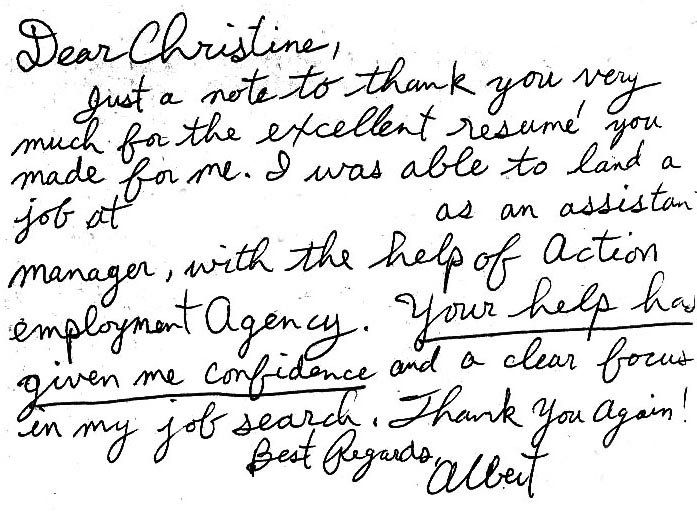 Dear Christine,
Just a note to thank you very
much for the excellent resumé you
made for me. I was able to land a
job at as an assistan
manager, with the help of Action
employment Agency. Your help ha
given me confidence and a clear focus
in my job search. Thank You Again!
Best Regards,
Albert